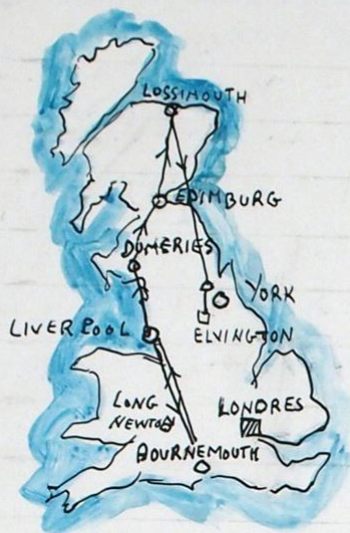 LOSSIMOUTH
EDIMBURG
DUMERIES
YORK
LIVERPOOL
ELVINGTON
LONG
NEWTON
LONDRES
BOURNEMOUTH